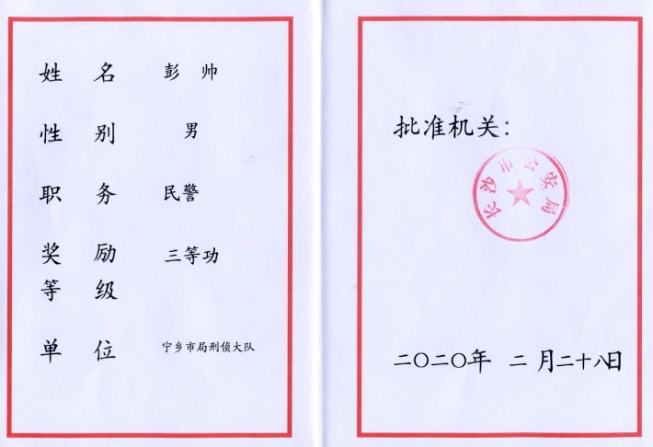 姓 名 彭 帅
性 别 男
职 务 民警
奖 励 三等功
等 级
单 位 宁乡市局刑侦大队
批准机关：
长沙市公安局
二〇二〇年 二 月二十八日